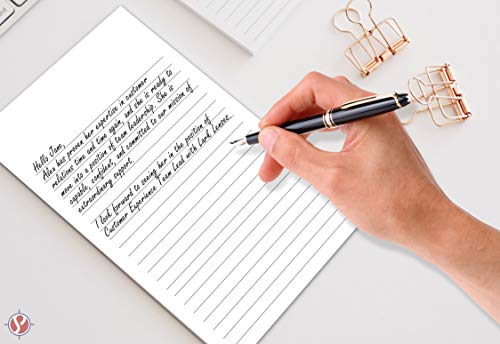 Hello Jam,
Alea has proven her expertise in customer
relations time and time again, and she is ready to
move into a position of team leadership. She is
capable, confident, and committed to our mission of
extraordinary support.
I look forward to seeing her in the position of
Customer Experience Team Lead with Lark Lenses.